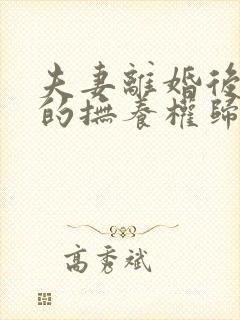 夫妻離婚後
的撫養權歸
高秀斌